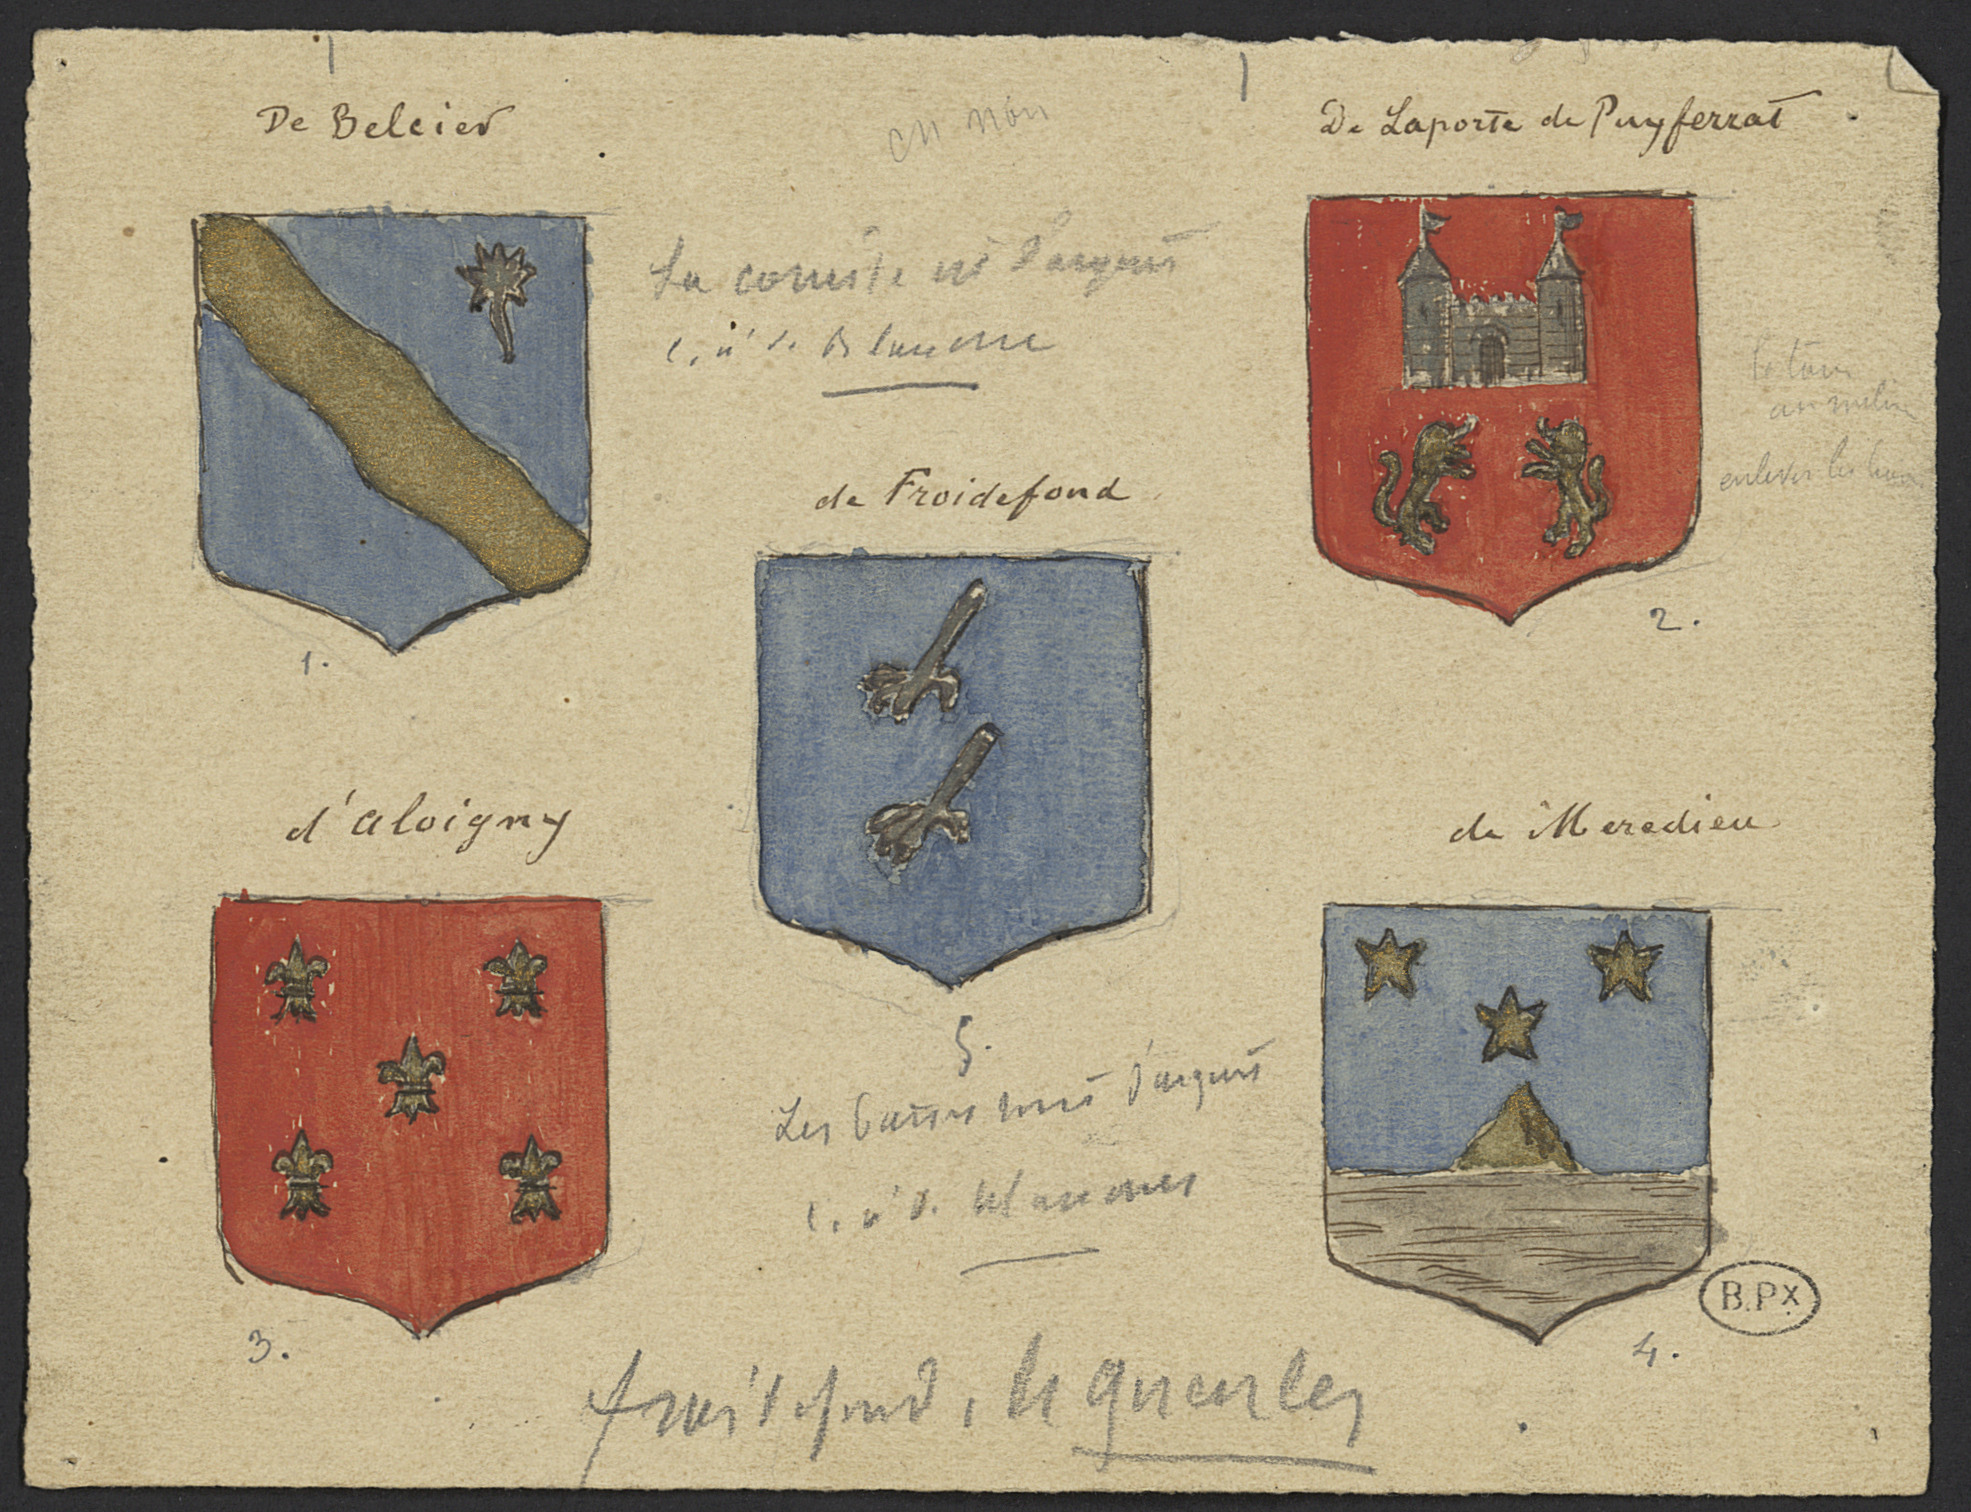 De Belcier
en noir
De Laporte de Puyferrat
La comète est d'argent
c. à d. Blanche
1.
2.
la tour
au milieu
enlever les lions
de Froidefond
5.
Les d'argent
c. à d. blanches
d'Aloigny
3.
de Meredieu
4.
B.PX
froidefond, de gueules